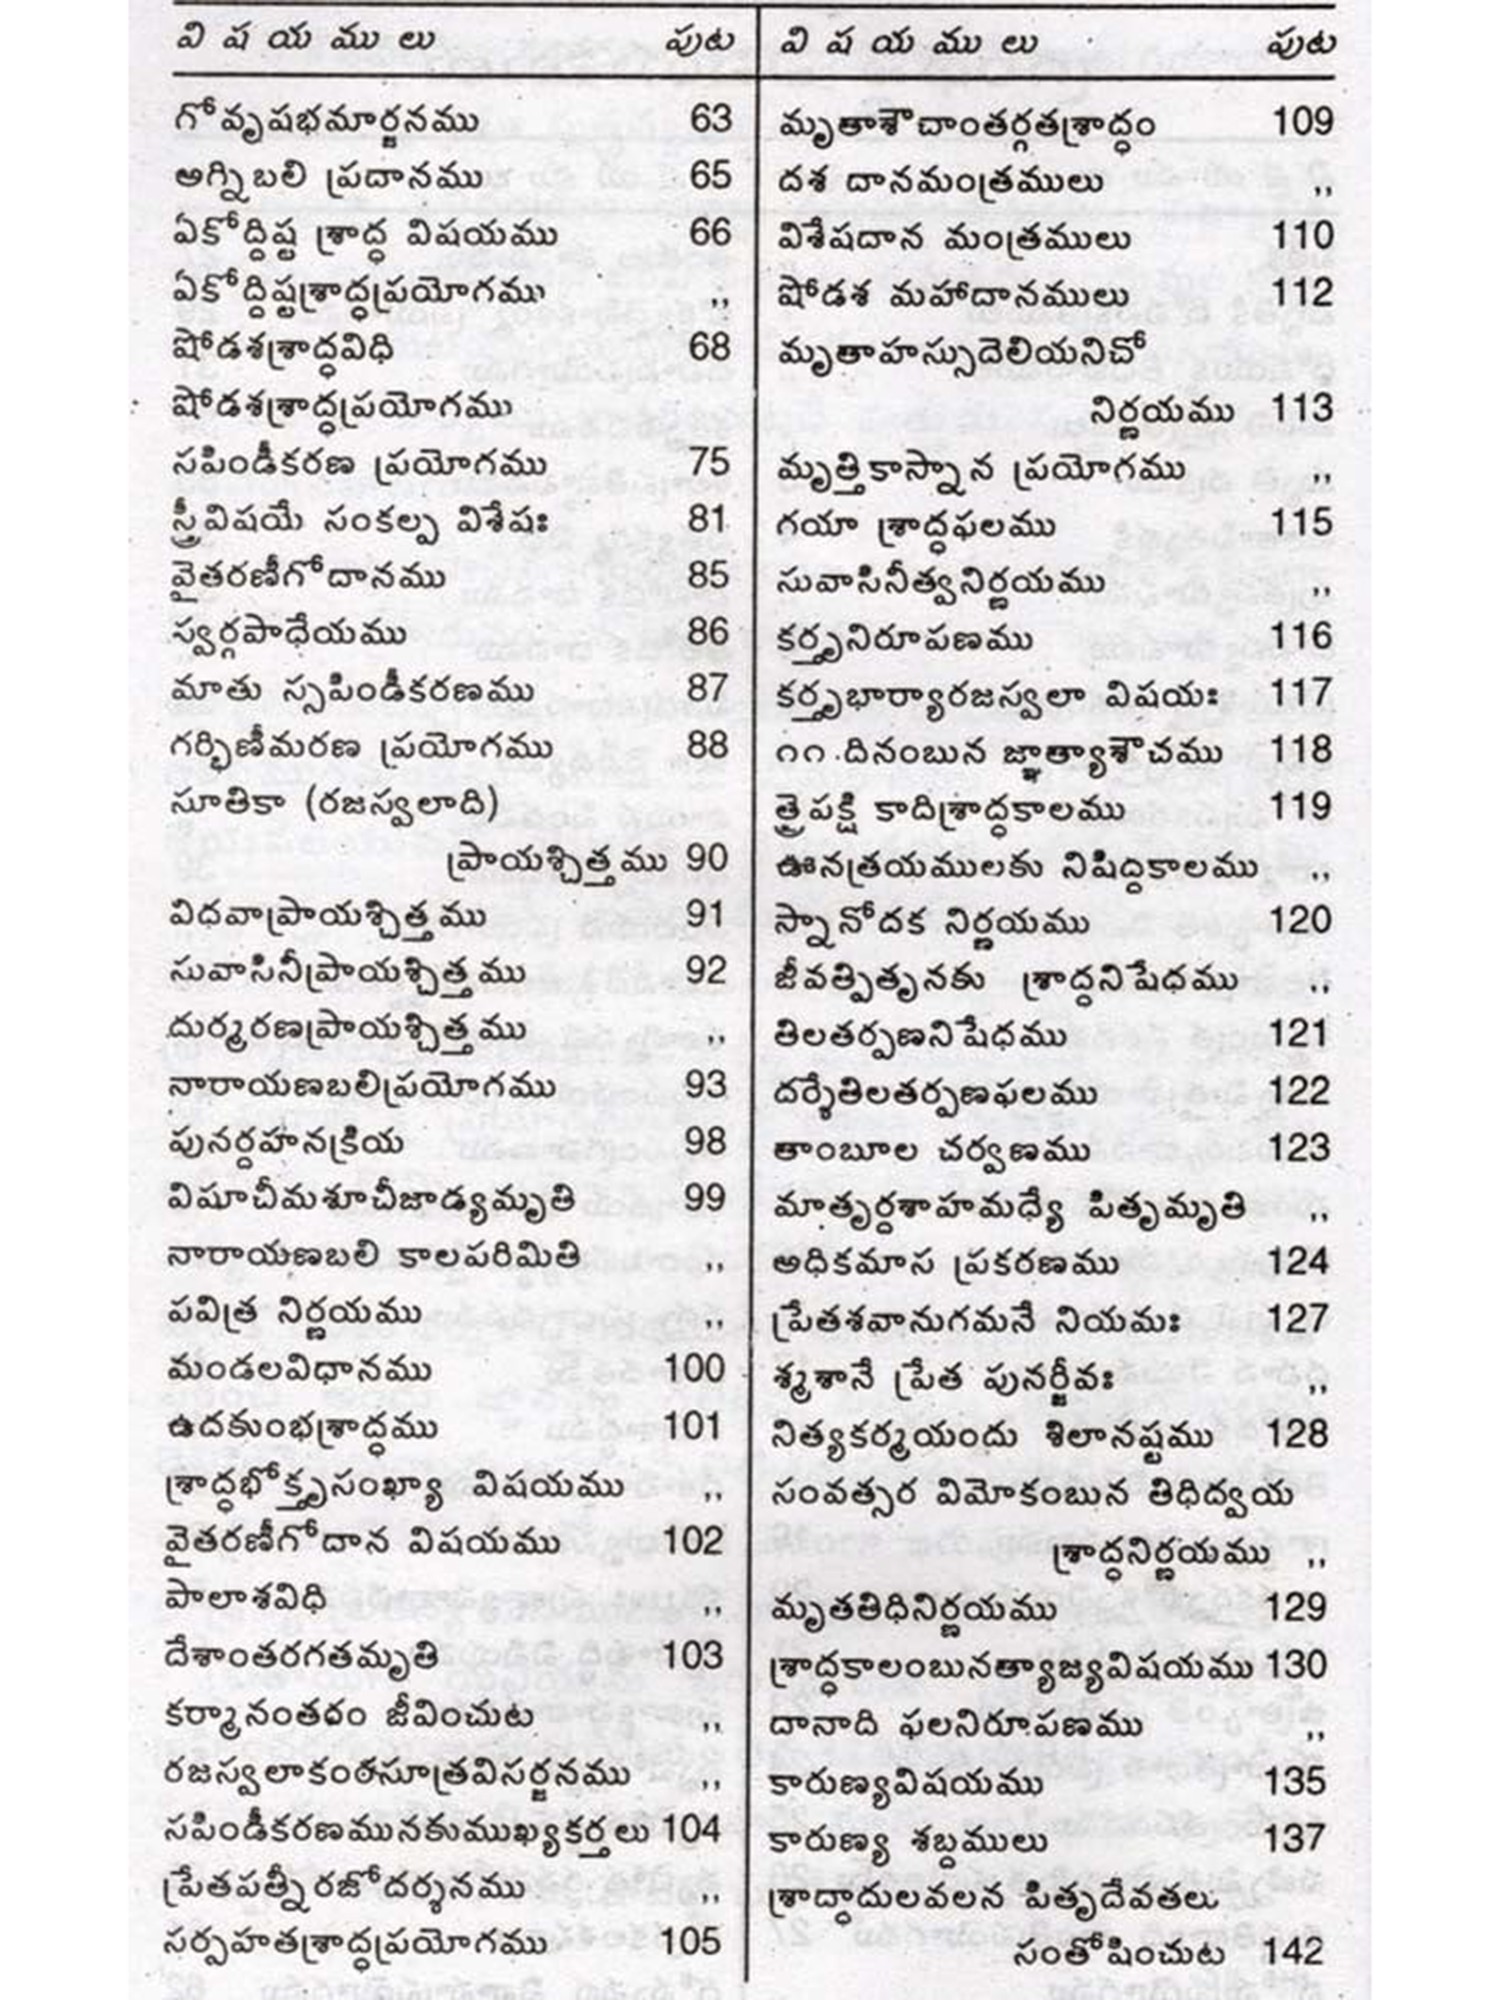 వి ష య ము లు పుట
గోవృషభమార్జనము 63
అగ్నిబలి ప్రదానము 65
ఏకోద్దిష్ట శ్రాద్ధ విషయము 66
ఏకోద్దిష్టశ్రాద్ధప్రయోగము ,,
షోడశశ్రాద్ధవిధి 68
షోడశశ్రాద్ధప్రయోగము
సపిండీకరణ ప్రయోగము 75
స్త్రీవిషయే సంకల్ప విశేషః 81
వైతరణీగోదానము 85
స్వర్గపాధేయము 86
మాతు స్సపిండీకరణము 87
గర్భిణీమరణ ప్రయోగము 88
సూతికా (రజస్వలాది)
ప్రాయశ్చిత్తము 90
విధవాప్రాయశ్చిత్తము 91
సువాసినీప్రాయశ్చిత్తము 92
దుర్మరణప్రాయశ్చిత్తము ,,
నారాయణబలిప్రయోగము 93
పునర్దహనక్రియ 98
విషూచీమశూచీజాడ్యమృతి 99
నారాయణబలి కాలపరిమితి ,,
పవిత్ర నిర్ణయము ,,
మండలవిధానము 100
ఉదకుంభశ్రాద్ధము 101
శ్రాద్ధభోక్తృసంఖ్యా విషయము ,,
వైతరణీగోదాన విషయము 102
పాలాశవిధి ,,
దేశాంతరగతమృతి 103
కర్మానంతరం జీవించుట ,,
రజస్వలాకంఠసూత్రవిసర్జనము ,,
సపిండీకరణమునకుముఖ్యకర్తలు 104
ప్రేతపత్నీరజోదర్శనము ,,
సర్పహతశ్రాద్ధప్రయోగము 105
వి ష య ము లు పుట
మృతాశౌచాంతర్గతశ్రాద్ధం 109
దశ దానమంత్రములు ,,
విశేషదాన మంత్రములు 110
షోడశ మహాదానములు 112
మృతాహస్సుదెలియనిచో
నిర్ణయము 113
మృత్తికాస్నాన ప్రయోగము ,,
గయా శ్రాద్ధఫలము 115
సువాసినీత్వనిర్ణయము ,,
కర్తృనిరూపణము 116
కర్తృభార్యారజస్వలా విషయః 117
౧౧.దినంబున జ్ఞాత్యాశౌచము 118
త్రైపక్షి కాదిశ్రాద్ధకాలము 119
ఊనత్రయములకు నిషిద్ధకాలము ,,
స్నానోదక నిర్ణయము 120
జీవత్పితృనకు శ్రాద్ధనిషేధము ,,
తిలతర్పణనిషేధము 121
దర్శేతిలతర్పణఫలము 122
తాంబూల చర్వణము 123
మాతృర్దశాహమధ్యే పితృమృతి ,,
అధికమాస ప్రకరణము 124
ప్రేతశవానుగమనే నియమః 127
శ్మశానే ప్రేత పునర్జీవః ,,
నిత్యకర్మయందు శిలానష్టము 128
సంవత్సర విమోకంబున తిధిద్వయ
శ్రాద్ధనిర్ణయము ,,
మృతతిధినిర్ణయము 129
శ్రాద్ధకాలంబునత్యాజ్యవిషయము 130
దానాది ఫలనిరూపణము ,,
కారుణ్యవిషయము 135
కారుణ్య శబ్దములు 137
శ్రాద్ధాదులవలన పితృదేవతలు
సంతోషించుట 142